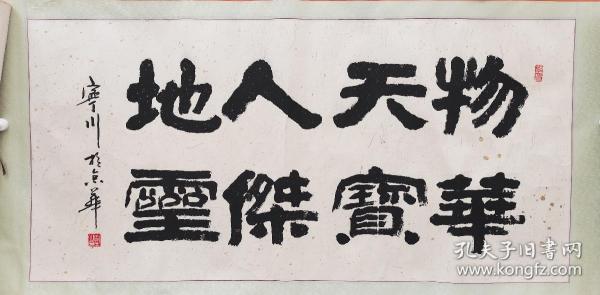 物華
天寶
人傑
地靈
寧川於京華
孔夫子旧书网
www.kongfz.com